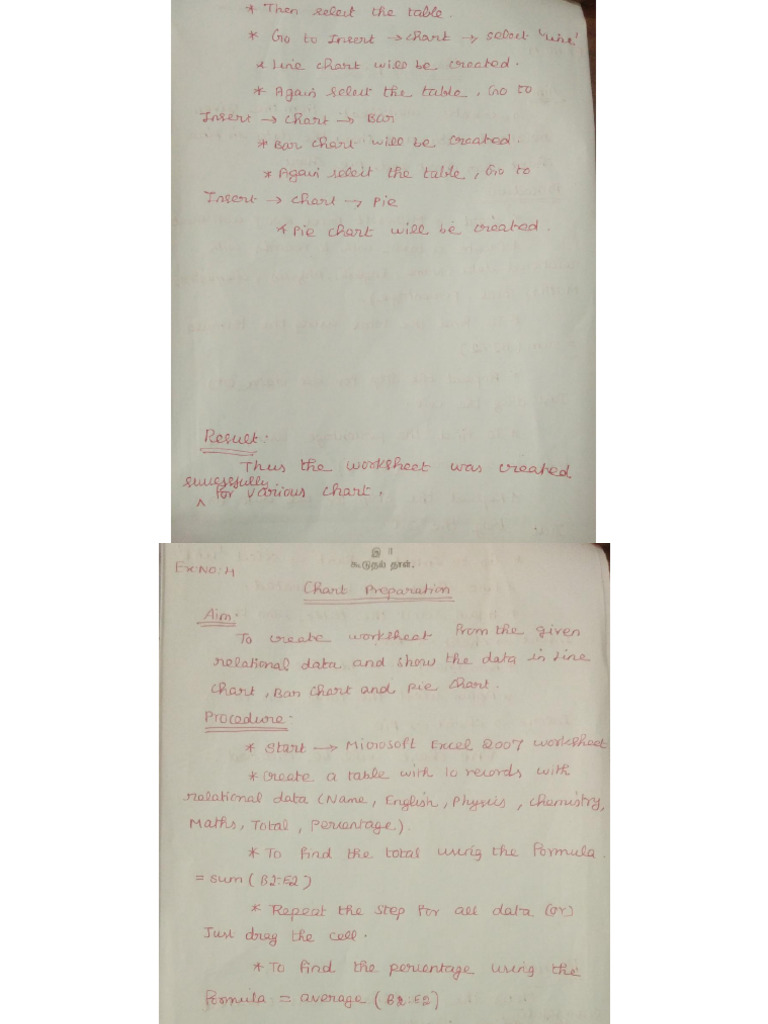 * Then select the table.
* Go to Insert → chart → select 'Line'
* Line chart will be created.
* Again select the table, Go to
Insert → chart → Bar
* Bar chart will be created.
* Again select the table, Go to
Insert → chart → Pie
* Pie chart will be created.
Result:
Thus the worksheet was created
successfully
^ for various chart.
கூடுதல் தாள்.
Ex:No: 4
Chart Preparation
Aim:
To create worksheet from the given
relational data and show the data in Line
chart, Bar chart and pie chart.
Procedure:
* Start → Microsoft Excel 2007 worksheet
* Create a table with 10 records with
relational data (Name, English, Physics, Chemistry,
Maths, Total, Percentage).
* To find the total using the formula
= sum (B2:E2)
* Repeat the step for all data (or)
Just drag the cell.
* To find the percentage using the
formula = average (B2:E2)